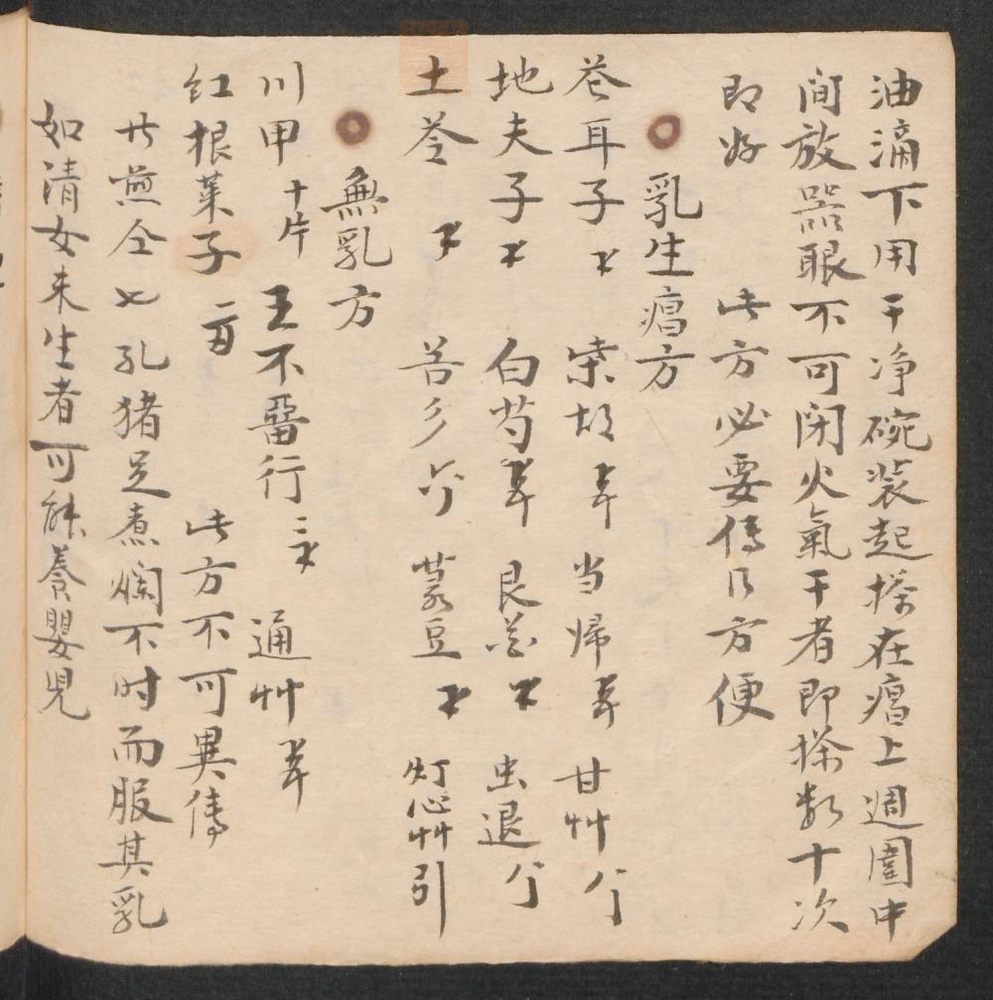 油滴下用干净碗装起搽在瘤上週圍中
间放器眼不可閉火氣干者即搽数十次
即好 此方必要傳乃方便
乳生瘤方
苍耳子 柴胡 当帰 甘艸
地夫子 白芍 艮花 虫退
土苓 豆 灯心艸引
無乳方
川甲十片 王不留行 通艸
红根菜子 此方不可異傳
共煎仝七孔猪足煮爛不时而服其乳
如清女未生者可能養嬰児